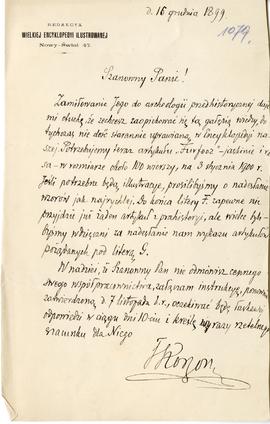 REDAKCYA
WIELKIEJ ENCYKLOPEDYI ILUSTROWANEJ
Nowy-Świat 47.
d. 16 grudnia 1899
1074.
Szanowny Panie!
Zamiłowanie Jego do archeologii przedhistorycznej daje
mi otuchę, że zechcesz zaopiekować się tą gałęzią wiedzy, do
tychczas nie dość starannie uprawianą w Encyklopedyi na
szej. Potrzebujemy teraz artykułu „Furfooz" - jaskinia i ra
sa - w rozmiarze około 100 wierszy, na 3 stycznia 1900.
Jeśli potrzebne będą illustracye, prosilibyśmy o nadesłanie
wzorów jak najrychlej. Do końca litery F. zapewne nie
przyjdzie już żaden artykuł z prahistoryi, ale wielce byli
byśmy wdzięczni za nadesłanie nam wykazu artykułów
pożądanych pod literą G.
W nadziei, że Szanowny Pan nie odmówisz cennego
swego współpracownictwa, załączam instrukcyę, ponownie
zatwierdzoną d. 7 listopada b.r., oczekiwać będę łaskawej
odpowiedzi w ciągu dni 10-ciu i kreślę wyrazy rzetelnego
szacunku dla Niego
T Korzon